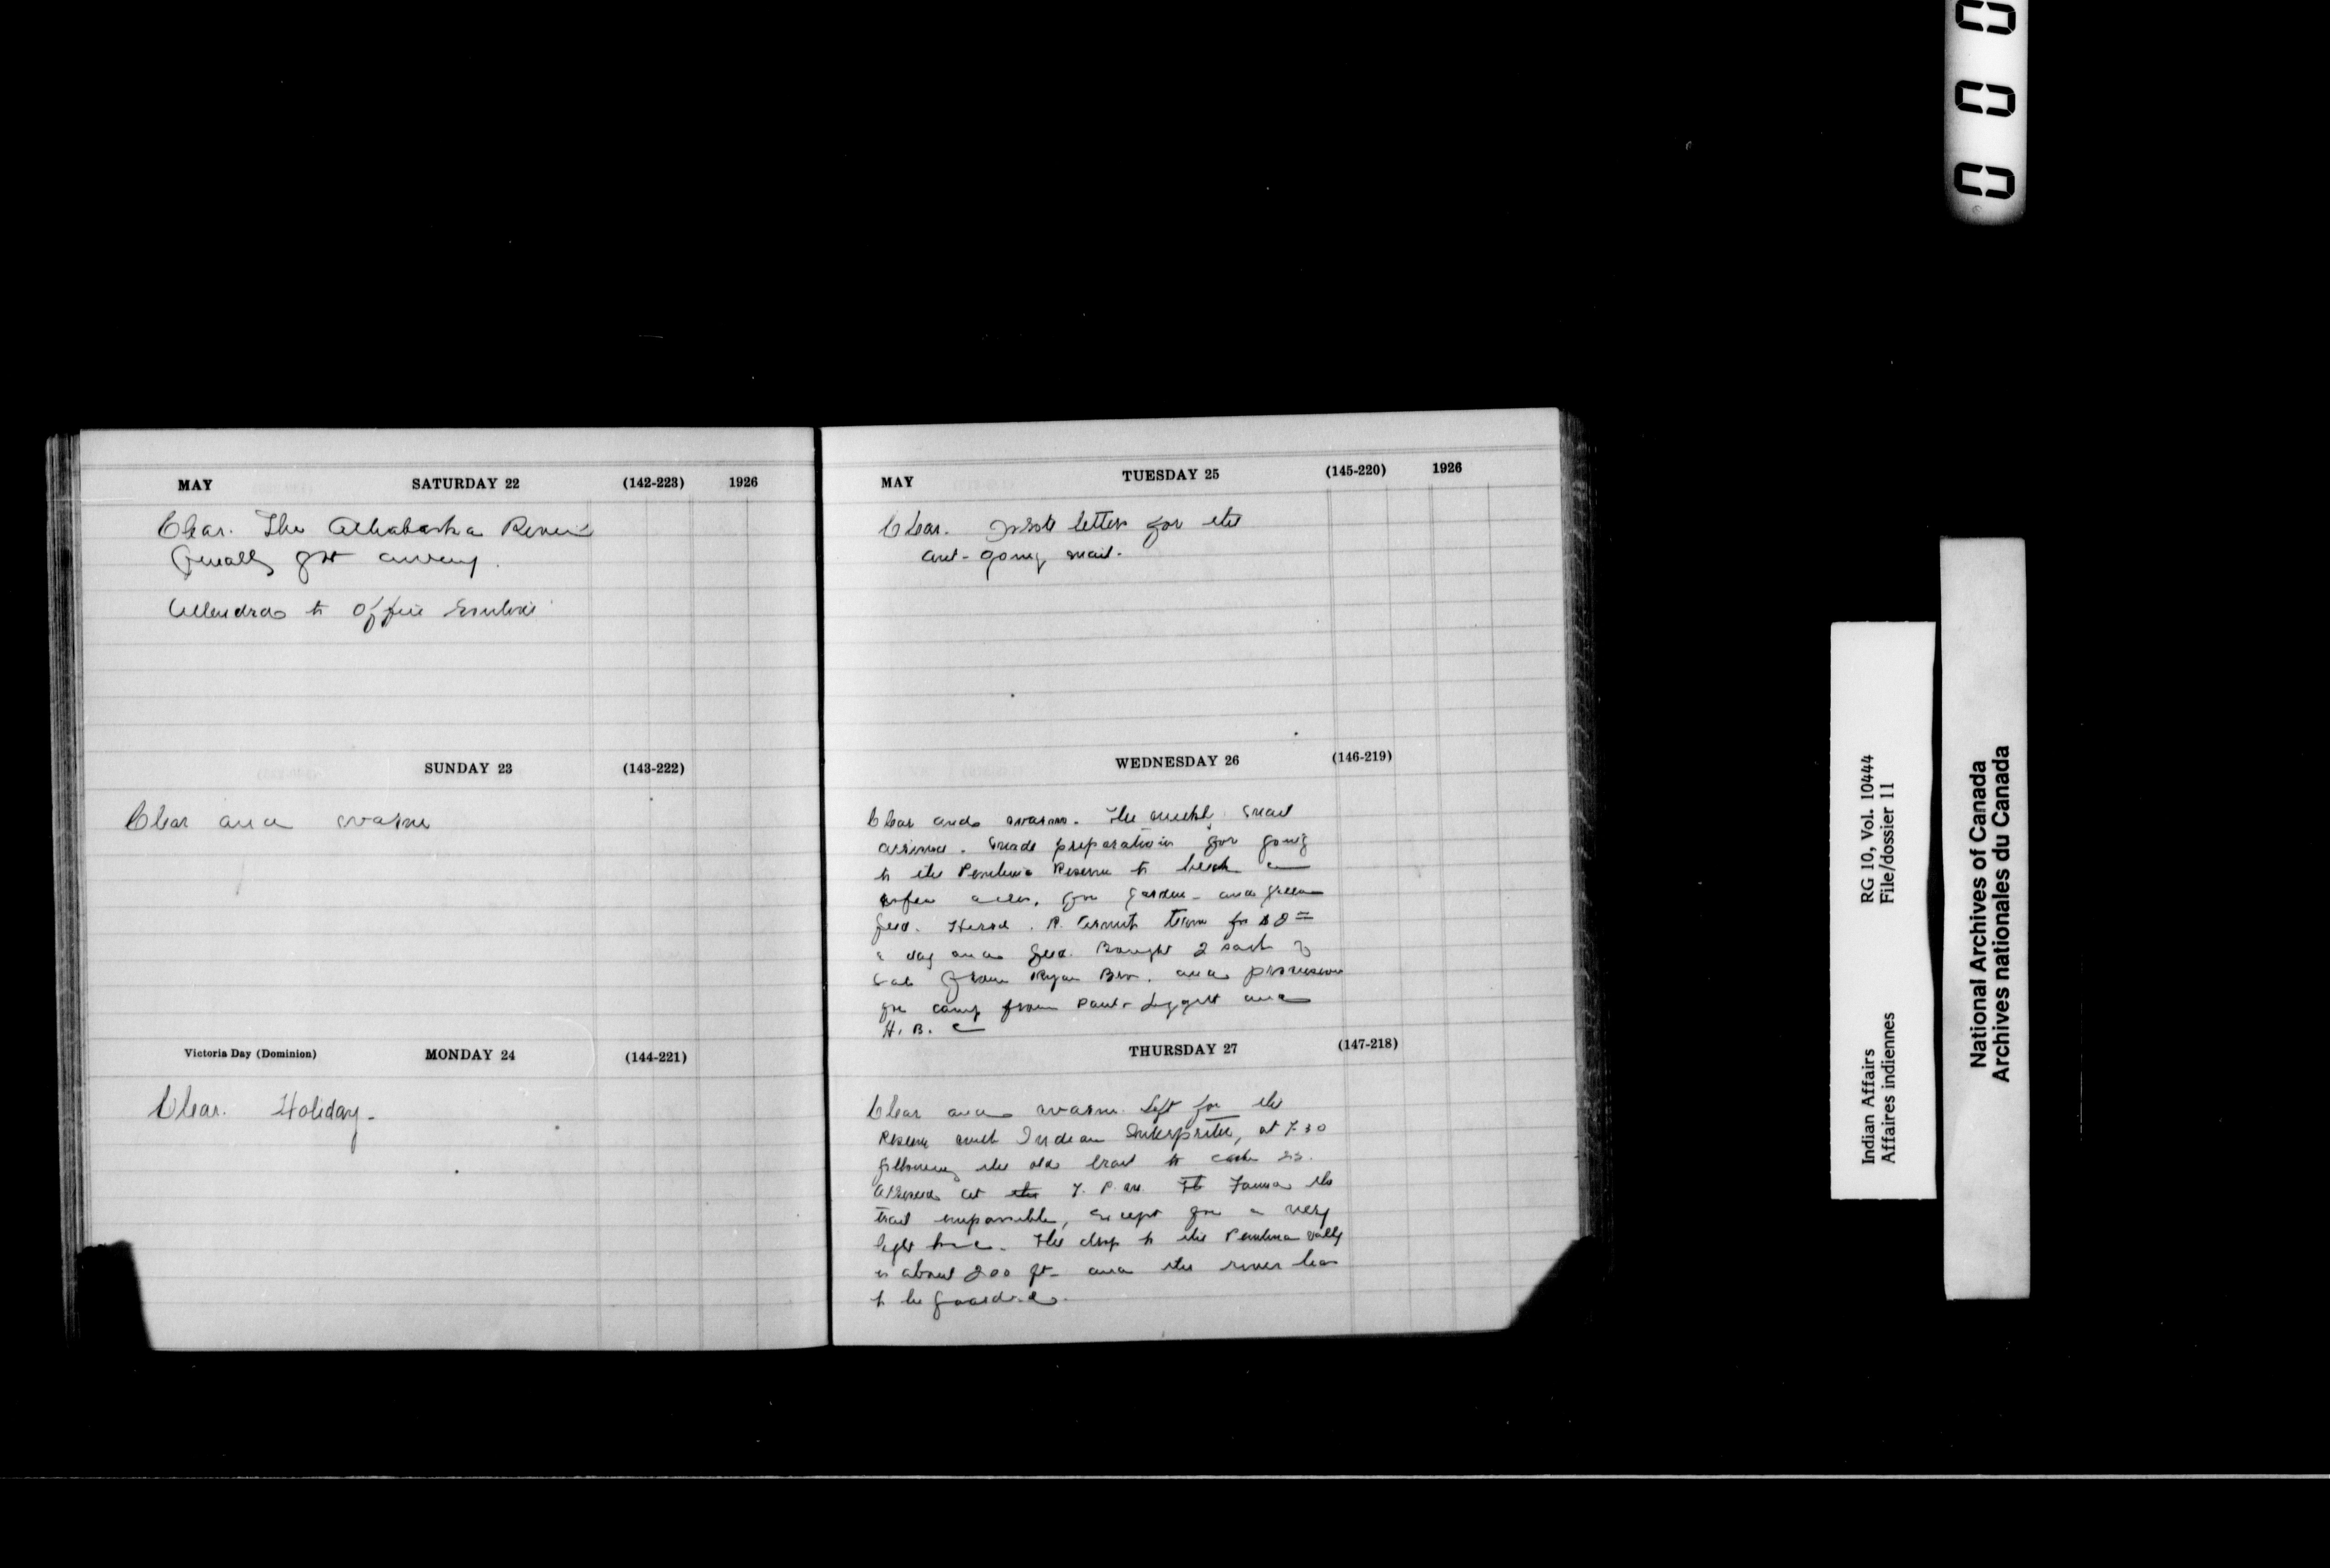 MAY SATURDAY 22 (142-223) 1926
Clear. The Athabaska River
finally got away.
Attended to office routine
SUNDAY 23 (143-222)
Clear and warm
Victoria Day (Dominion) MONDAY 24 (144-221)
Clear. Holiday.
MAY TUESDAY 25 (145-220) 1926
Clear. Wrote letters for the
out-going mail.
WEDNESDAY 26 (146-219)
Clear and warm. The mail
arrived. Made preparations for going
to the Pembina Reserve to break a
few acres, for garden and green
feed. Hired R. team for $8=
a day and feed. Bought 2 sack of
oats from Ryan Bro. and provisions
for camp from and
H. B. C
THURSDAY 27 (147-218)
Clear and warm. Left for the
Reserve with Indian Interpreter, at 7.30
following the old trail to
Arrived at the 7. P.M. Found the
trail impossible, except for a very
light . The drop to the Pembina Vally
is about 200 ft. and the river has
to be forded.
0 0 0
Indian Affairs RG 10, Vol. 10444
Affaires indiennes File/dossier 11
National Archives of Canada
Archives nationales du Canada